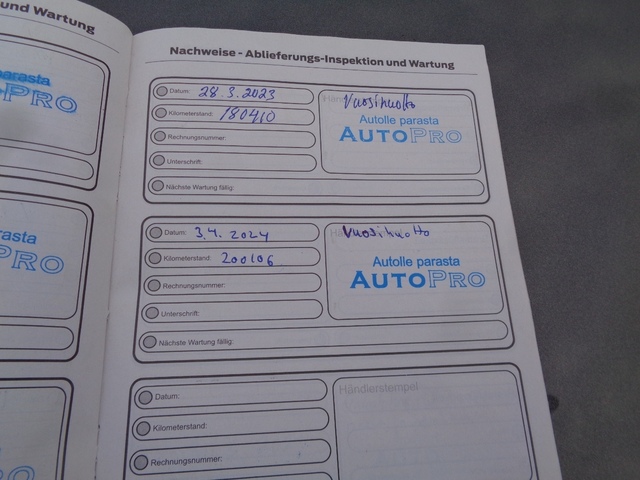 und Wartung
parasta
PRO
rasta
PRO
Nachweise - Ablieferungs-Inspektion und Wartung
Datum: 28.3.2023
Kilometerstand: 180410
Rechnungsnummer:
Unterschrift:
Nächste Wartung fällig:
Vuosihuolto
Autolle parasta
AUTOPRO
Datum: 3.4.2024
Kilometerstand: 200106
Rechnungsnummer:
Unterschrift:
Nächste Wartung fällig:
Vuosihuolto
Autolle parasta
AUTOPRO
Datum:
Kilometerstand:
Rechnungsnummer:
Händlerstempel